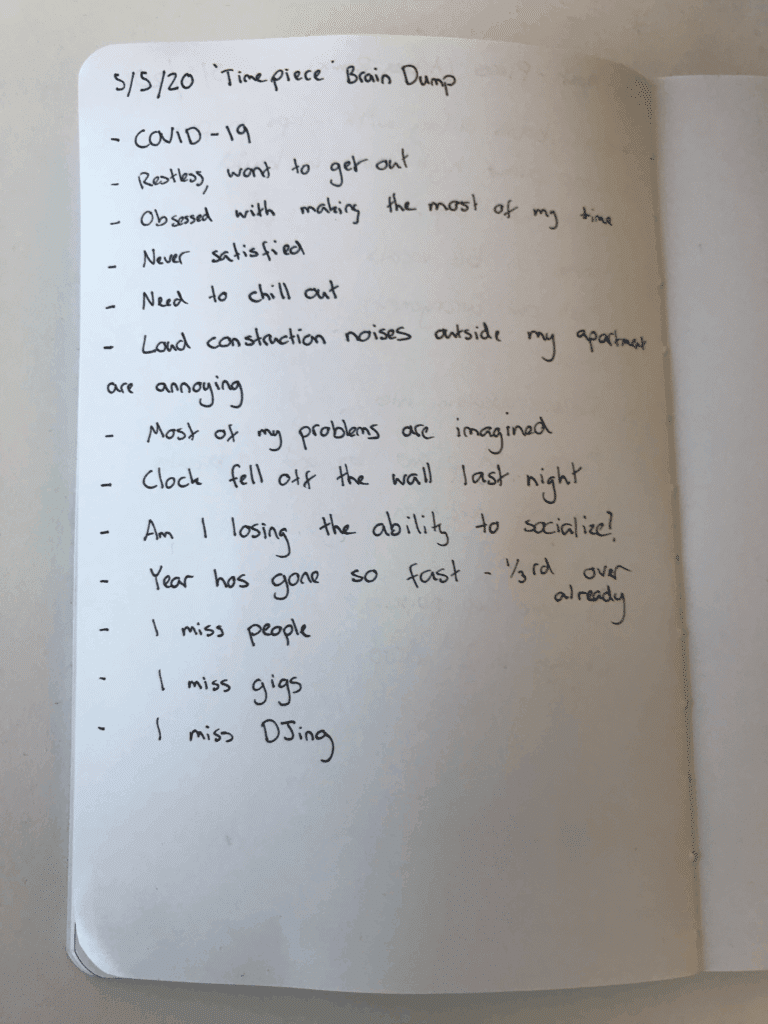 5/5/20 'Timepiece' Brain Dump
- COVID-19
- Restless, want to get out
- Obsessed with making the most of my time
- Never satisfied
- Need to chill out
- Loud construction noises outside my apartment
are annoying
- Most of my problems are imagined
- Clock fell off the wall last night
- Am I losing the ability to socialize?
- Year has gone so fast - 1/3rd over
already
- I miss people
- I miss gigs
- I miss DJing